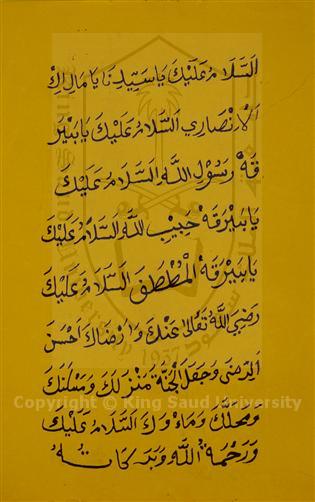 السَّلَامُ عَلَيْكَ يَا سَيِّدِنَا يَا مَالِكْ
الْأَنْصَارِي السَّلَامُ عَلَيْكَ يَا بَيْرَ
قَةْ رَسُوْلِ اللَّهِ السَّلَامُ عَلَيْكَ
يَا بَيْرَقَةْ حَبِيْبِ للَّهِ السَّلَامُ عَلَيْكَ
يَا بَيْرَقَةْ الْمُطْطَفَى السَّلَامُ عَلَيْكَ
رَضِيَ اللَّهُ تَعَالَى عَنْكَ وَاَرْضَاكَ اَحْسَنَ
الرِّضَى وَجَعَلَ الْجَنَّةَ مَنْزِلَكَ وَمَسْكَنَكَ
وَمَحَلَّكَ وَمَاءْوَكَ السَّلَامُ عَلَيْكَ
وَرَحْمَةُ اللَّهِ وَبَرَكَاتُهُ
Copyright © King Saud University
1957